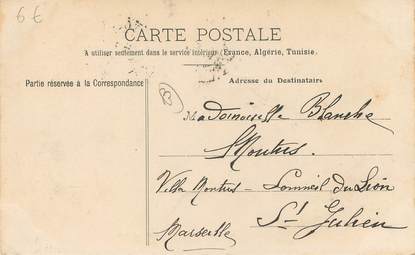 6€
CARTE POSTALE
A utiliser seulement dans le service intérieur (France, Algérie, Tunisie).
Partie réservée à la Correspondance
Adresse du Destinataire
Mademoiselle Blanche
Montus
Villa Montus - Sommeil du Lion
St Julien
Marseille